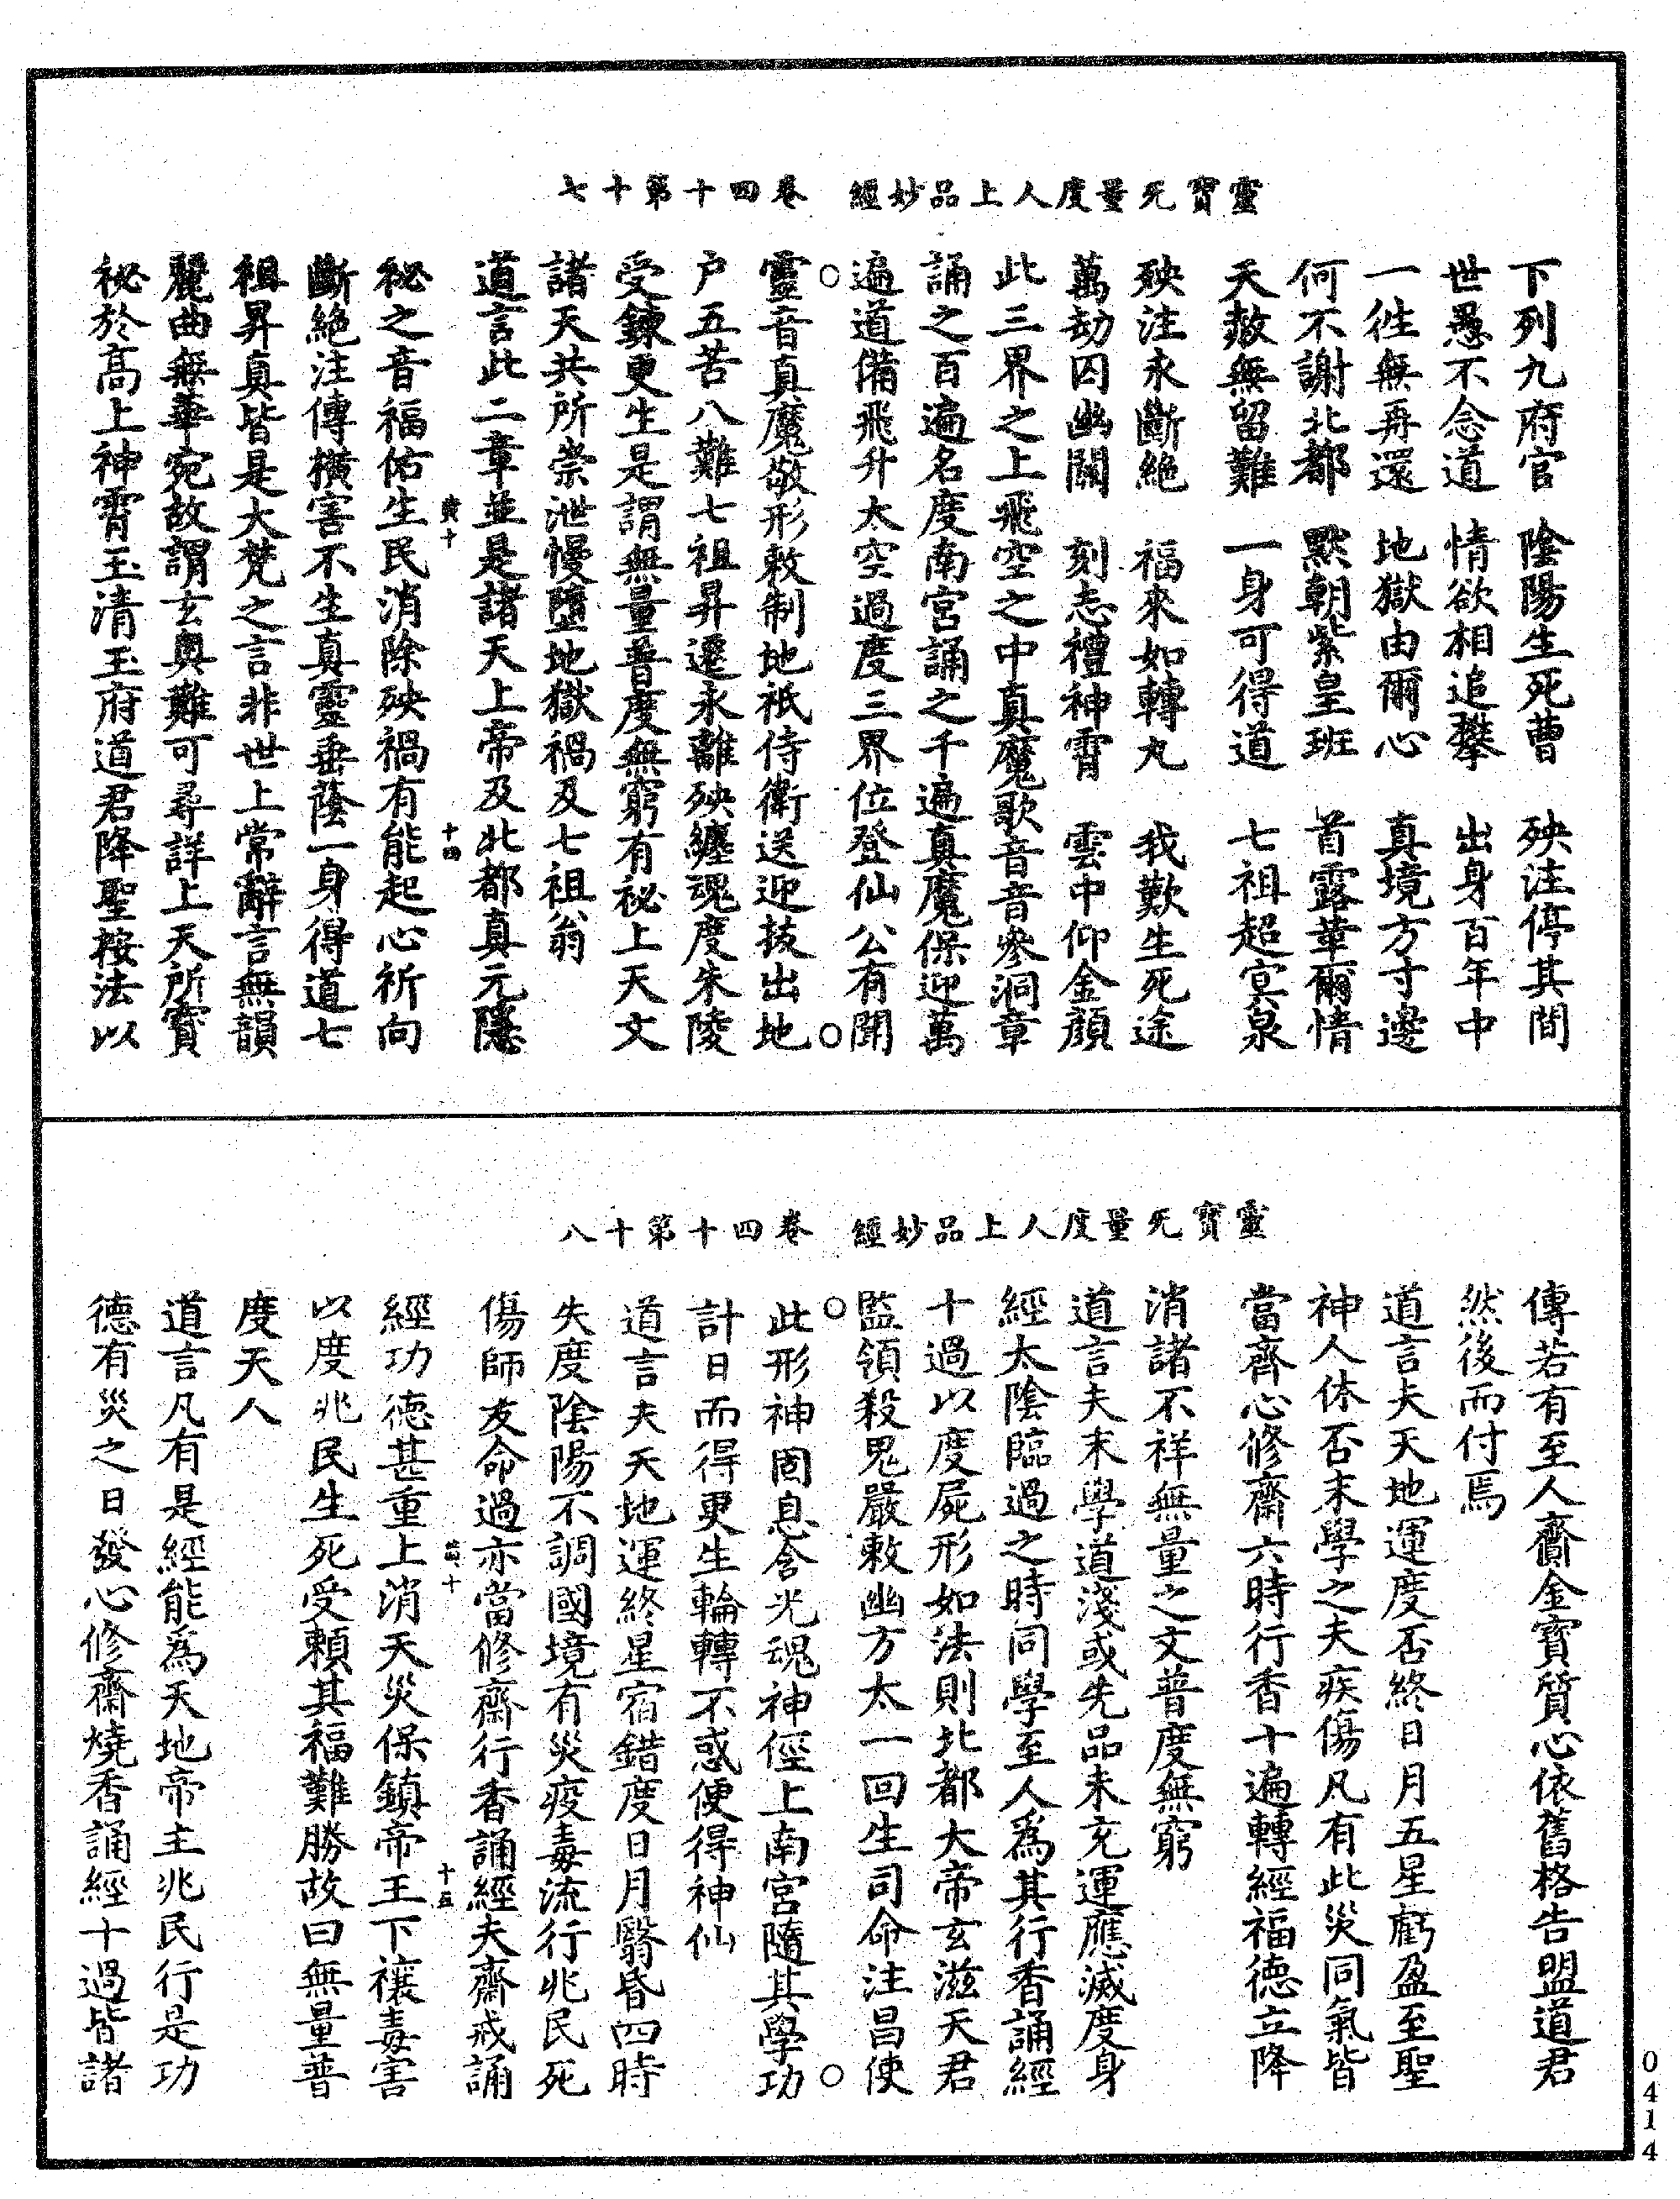 靈寶无量度人上品妙經　卷四十第十七
下列九府官　陰陽生死曹　殃注停其間
世愚不念道　情欲相追攀　出身百年中
一往無再還　地獄由爾心　真境方寸邊
何不謝北都　默朝紫皇班　首露華爾情
天赦無留難　一身可得道　七祖超冥泉
殃注永斷絶　福來如轉丸　我歎生死途
萬劫囚幽關　刻志禮神霄　雲中仰金顏
此三界之上飛空之中真魔歌音音參洞章
誦之百遍名度南宮誦之千遍真魔保迎萬
遍道備飛升太空過度三界位登仙公有聞
靈音真魔敬形敕制地祇侍衛送迎拔出地
户五苦八難七祖昇遷永離殃纏魂度朱陵
受鍊更生是謂無量普度無窮有祕上天文
諸天共所崇泄慢墮地獄禍及七祖翁
道言此二章並是諸天上帝及北都真元隱
祕之音福佑生民消除殃禍有能起心祈向
斷絶注傳橫害不生真靈垂蔭一身得道七
祖昇真皆是大梵之言非世上常辭言無韻
麗曲無華宛故謂玄奧難可尋詳上天所寶
祕於高上神霄玉清玉府道君降聖按法以
十四
靈寶无量度人上品妙經　卷四十第十八
傳若有至人齎金寶質心依舊格告盟道君
然後而付焉
道言夫天地運度否終日月五星虧盈至聖
神人休否末學之夫疾傷凡有此災同氣皆
當齊心修齋六時行香十遍轉經福德立降
消諸不祥無量之文普度無窮
道言夫末學道淺或先品未充運應滅度身
經太陰臨過之時同學至人爲其行香誦經
十過以度屍形如法則北都大帝玄滋天君
監領殺鬼嚴敕幽方太一回生司命注昌使
此形神固息含光魂神徑上南宮隨其學功
計日而得更生輪轉不惑便得神仙
道言夫天地運終星宿錯度日月翳昏四時
失度陰陽不調國境有災疫毒流行兆民死
傷師友命過亦當修齋行香誦經夫齋戒誦
經功德甚重上消天災保鎮帝王下禳毒害
以度兆民生死受賴其福難勝故曰無量普
度天人
道言凡有是經能爲天地帝主兆民行是功
德有災之日發心修齋燒香誦經十過皆諸
十五
0414